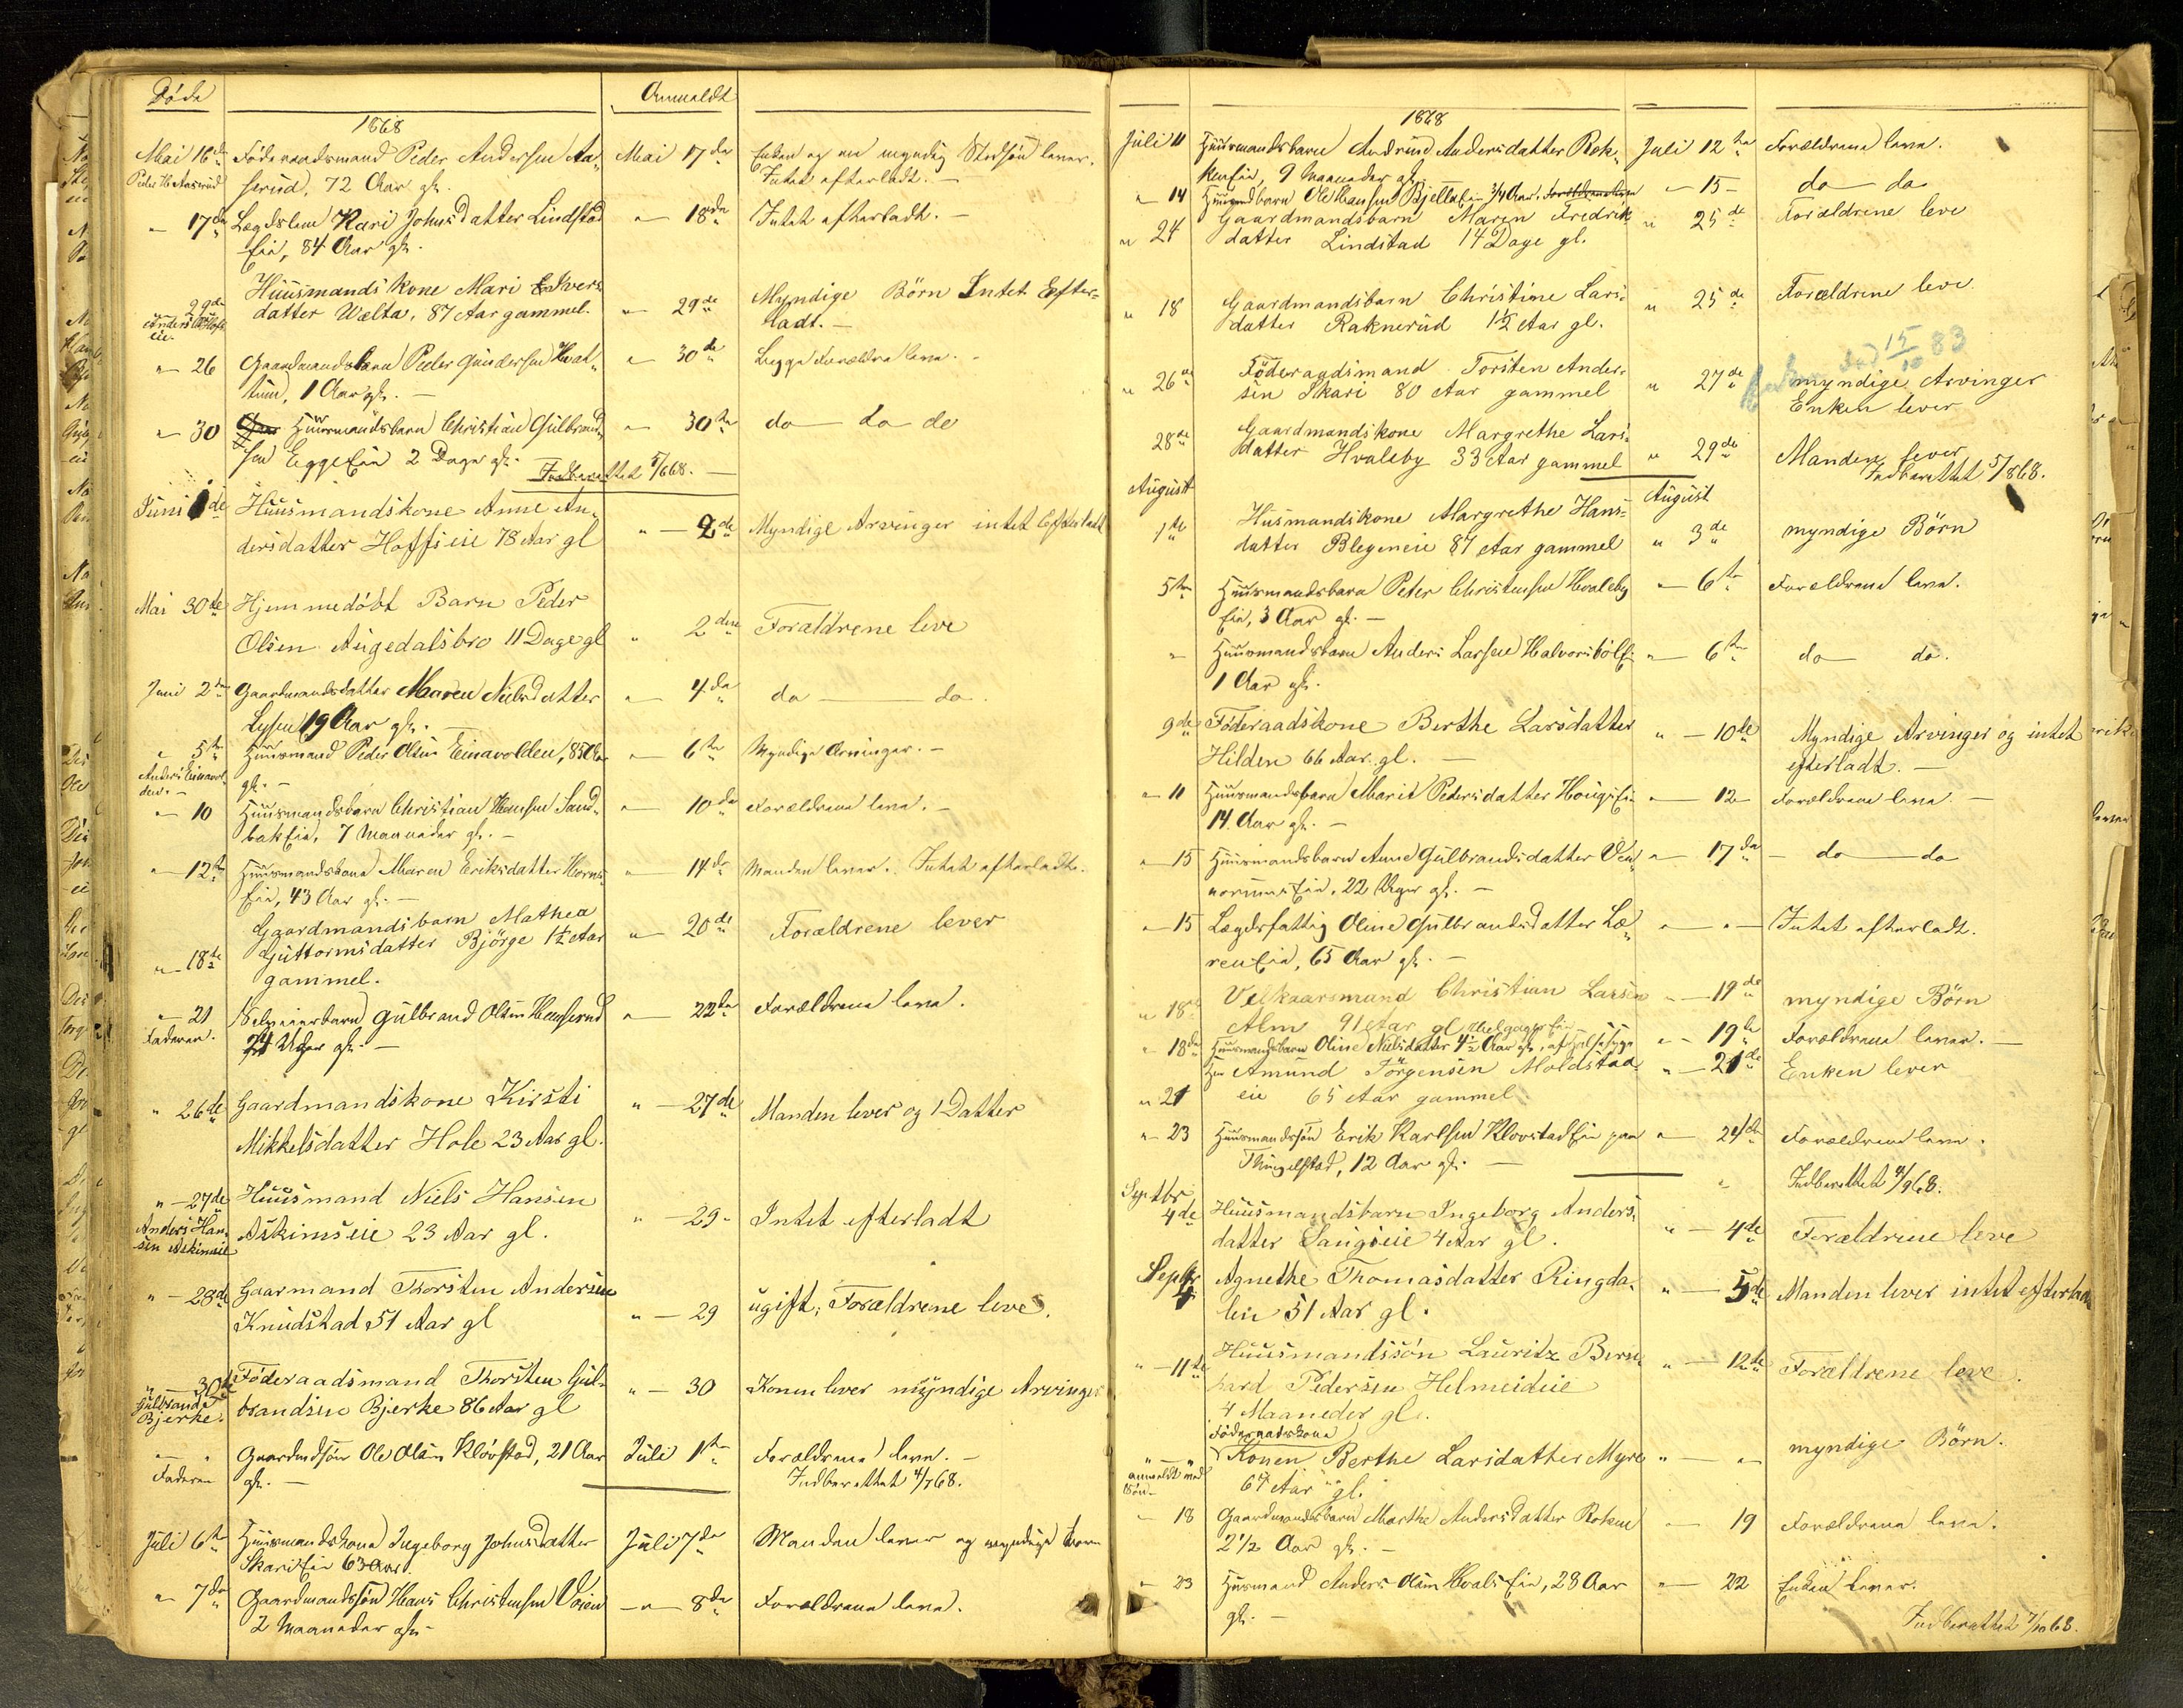 Døde
Anmeldt
1868
Mai 16de Föderaadsmand Peder Andersen Aa- Mai 17de Enken og en myndig Stedsön lever.
Peder H Aaserud serud, 72 Aar gl. Intet efterladt. —
" — 17de Lægdslem Kari Johnsdatter Lindstad " — 18de Intet efterladt. —
Eie, 84 Aar gl.
Huusmandskone Mari Ivers-
29de datter Welta, 87 Aar gammel. " — 29de Myndige Börn Intet Efter-
eie. ladt. —
" — 26 Gaardmandsbarn Peder Gundersen Hvat- " — 30de Begge Forældre leve. —
tum, 1 Aar gl. —
" — 30 Huusmandsbarn Christian Gulbrand- " — 30te do do do
sen Egge Eie 2 Dage gl. Indberettet 5/6 68. —
Juni 1de Huusmandskone Anne An- " — 2de Myndige Arvinger intet Efterladt
dersdatter Hoffseie 78 Aar gl
Mai 30te Hjemmedöbt Barn Peder
Olsen Augedalsbro 11 Dage gl " 2den Forældrene leve
Juni 2den Gaardmandsdatter Maren Nielsdatter " — 4de do — do.
Lysen 19 Aar gl. —
" 5te Huusmand Peder Olsen Einavolden, 85 Aar " — 6te Myndige Arvinger. —
Anders Einavol-
den. — gl. —
" — 10 Huusmandsbarn Christian Hansen Sand- " — 10de Forældrene leve. —
bakEie, 7 Maaneder gl. —
" — 12te Huusmandskone Maren Eriksdatter Horns- " — 14de Manden lever. Intet efterladt.
Eie, 43 Aar gl. —
Gaardmandsbarn Mathea
" — 18te Guttormsdatter Björge 1½ Aar " — 20de Forældrene lever
gammel.
" — 21 Selveierbarn Gulbrand Olsen Hauserud " — 22de Forældrene leve.
Faderen. 24 Uger gl. —
" 26de Gaardmandskone Kirsti " — 27de Manden lever og 1 Datter
Mikkelsdatter Hole 23 Aar gl.
" — 27de Huusmand Niels Hansen
Anders Han-
sen Askimseie Askimseie 23 Aar gl. " — 29 — Intet efterladt
" — 28de Gaarmand Thorsten Andersen
Knudstad 51 Aar gl " — 29 ugift; Forældrene leve.
" — 30te Föderaadsmand Thorsten Gul- " — 30 Konen lever myndige Arvinger
Gulbrand
Bjerke. brandsen Bjerke 86 Aar gl
" — " Gaardmdsön Ole Olsen Klövstad, 21 Aar Juli 1te Forældrene leve. —
Faderen gl. — Indberettet 4/7 68.
Juli 6te Huusmandskone Ingeborg Johnsdatter Juli 7de Manden lever og myndige Børn
SkariEie 63 Aar.
" 7de Gaardmandssøn Hans Christensen Voien — " — 8de Forældrene leve.
2 Maaneder gl —
1868
Juli 11 Huusmandsbarn Andrine Andersdatter Rek- Juli 12te Forældrene leve.
kenEie, 9 Maaneder gl.
" 14 Huusmdbarn Ole Hansen BjellaEie ¾ Aar. " — 15 — do do
" 24 Gaardmandsbarn Maren Fredrik- " 25de Forældrene leve
datter Lindstad 14 Dage gl.
" 18 Gaardmandsbarn Christine Lars- " 25de Forældrene leve.
datter Raknerud 1½ Aar gl.
Enken död 15/10 83
" 26de Föderaadsmand Torsten Ander- " 27de myndige Arvinger
sen Skari 80 Aar gammel Enken lever
28de Gaardmandskone Margrethe Lars-
datter Hvaleby 33 Aar gammel " 29de Manden lever
Indberettet 5/8 68.
August August
1te Husmandskone Margrethe Hans-
datter Blegeneie 87 Aar gammel " 3de myndige Börn
5te Huusmandsbarn Peter Christensen Hvaleby " — 6te Forældrene leve.
Eie, 3 Aar gl. —
" Huusmandsbarn Anders Larsen HalvorsbölEie " — 6te do do.
1 Aar gl.
9de Föderaadskone Berthe Larsdatter " — 10de Myndige Arvinger og intet
Hilden 66 Aar gl. — efterladt. —
" 11 Huusmandsbarn Marit Pedersdatter HougsEie " — 12 — Forældrene leve. —
14 Aar gl. —
" — 15 Huusmandsbarn Anne Gulbrandsdatter Ven- " — 17de — do — do
Eie, 22 Uger gl. —
" — 15 Lægdsfattig Oline Gulbrandsdatter Læ- " — " — Intet efterladt.
renEie, 65 Aar gl. —
" 18de Velkaarsmand Christian Larsen " — 19de myndige Börn
Alm 91 Aar gl
" 18de Huusmandsbarn Oline Nielsdatter 4½ Aar gl. " — 19de Forældrene lever. —
" 21 Amund Jörgensen Moldstad- " — 21de Enken lever
eie 65 Aar gammel
" 23 Huusmandssön Erik Karlsen KlovstadEie paa " — 24de Forældrene leve.
Thingelstad, 12 Aar gl. —
Indberettet 4/9 68.
Septbr
4de Huusmandsbarn Ingeborg Anders-
datter Sangseie 4 Aar gl. " — 4de Forældrene leve
Septbr
4 Agnethe Thomasdatter Ringda- " — 5de Manden lever intet efterladt
len 51 Aar gl.
" — 11te Huusmandssön Lauritz Bern- " — 12te Forældrene leve.
hard Pedersen Helmeideie
4 Maaneder gl.
Föderaadskone
" — " Konen Berthe Larsdatter Myre " — " myndige Börn.
anmeldt ved
Sön — 67 Aar gl.
" 18 Gaardmandsbarn Marthe Andersdatter Roken " — 19 Forældrene leve.
2½ Aar gl. —
" — 23 Husmand Anders Olsen HvalsEie, 28 Aar " — 22 Enken lever.
gl. —
Indberettet 7/10 68.